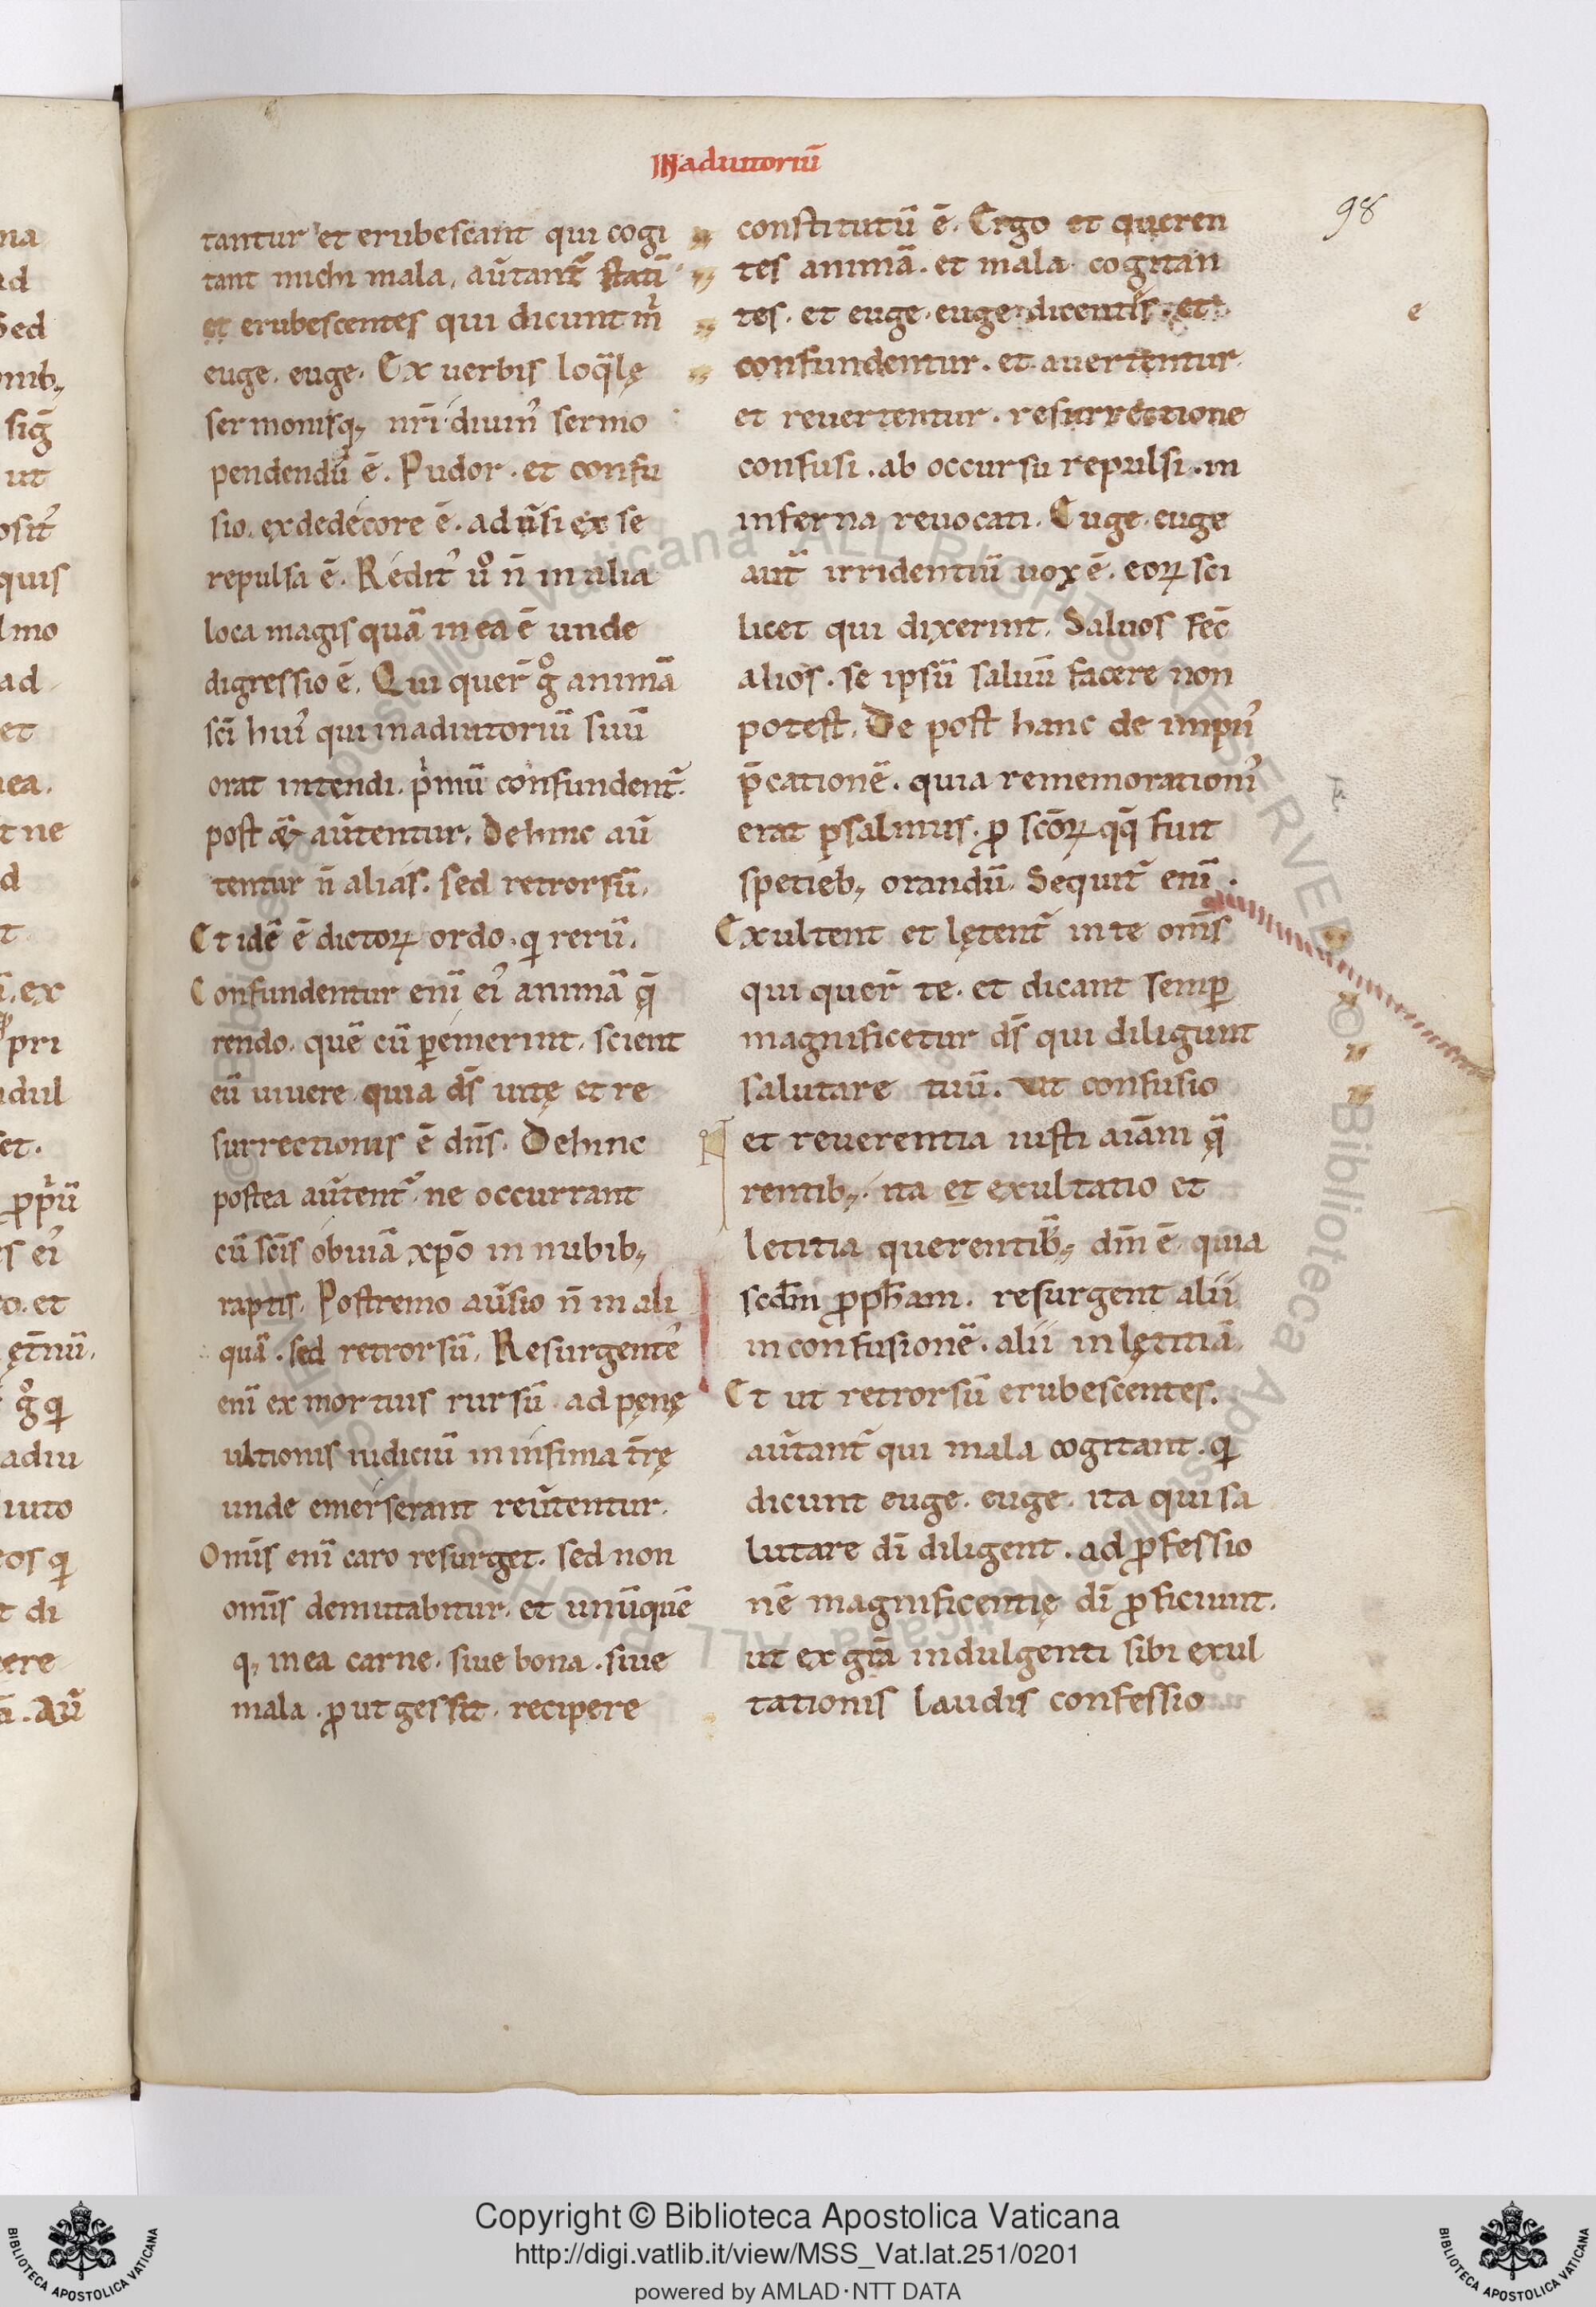 IN adiutoriū
98
tantur et erubescant qui cogi
tant michi mala. aūtant᷑ statī
et erubescentes qui dicunt m̄
euge. euge. Ex uerbis loq̄lę
sermonisq; nr̄i diuin᷒ sermo
pendendū ē. Pudor. et confu
sio. ex dedecore ē. aduersi ex se
repulsa ē. Redit᷒ ů n̄ in alia
loca magis quā in ea ē unde
digressio ē. Qui quer̄ g̊ animā
sc̄i hui᷒ qui in adiutoriū suū
orat intendi. p̍mū confundent᷑.
post aūtentur. Dehinc aū
tentur n̄ alias. sed retrorsū.
Et idē ē dictoꝝ ordo. q̍ rerū.
Confundentur enī ei᷒ animā q̄
rendo. quē cū ꝑemerint. scient
eū uiuere quia ds̄ uitę et re
surrectionis ē dn̄s. Dehinc
postea aūtent᷑ ne occurrant
cū sc̄is obuiā xp̄o in nubib;
raptis. Postremo aūsio n̄ in ali
quā. sed retrorsū. Resurgente᷒
enī ex mortuis rursū ad pęnę
ultionis iudiciū in infima t̄rę
unde emerserant reūtentur.
Omīs enī caro resurget. sed non
omīs demutabitur. et unūquē
q; in ea carne. siue bona. siue
mala. ꝓut gessit. recipere
constitutū ē. Ergo et queren
tes animā. et mala cogitan
tes. et euge. euge. dicentis. et
confundentur. et auertentur.
et reuertentur. resurrectione
confusi. ab occursu repulsi. in
inferna reuocati. Euge. euge
aut̄ irridentiū uox ē. eoꝝ sci
licet qui dixerint. Saluos fec̄
alios. se ipsū saluū facere non
potest. De post hanc de impii᷒
p̄cationē. quia rememoration᷒
erat psalmus. ꝓ sc̄oꝝ qq̄ fuit
spetieb; orandū. Sequit᷑ enī.
Exultent et lętent᷑ in te omīs
qui quer̄ te. et dicant semꝑ
magnificetur ds̄ qui diligunt
salutare tuū. Vt confusio
et reuerentia iusti aīam q̄
rentib;. ita et exultatio et
letitia querentib; dm̄ ē. quia
scdm̄ ꝓph̄am. resurgent alii
in confusionē. alii in lętitiā.
Et ut retrorsū erubescentes.
aūtant᷑ qui mala cogitant. q̍
dicunt euge. euge. ita qui sa
lutare dī diligent. ad ꝓfessio
nē magnificentię dī ꝓficiunt.
ut ex gr̄a indulgenti sibi exul
tationis laudis confessio
Copyright © Biblioteca Apostolica Vaticana
http://digi.vatlib.it/view/MSS_Vat.lat.251/0201
powered by AMLAD·NTT DATA